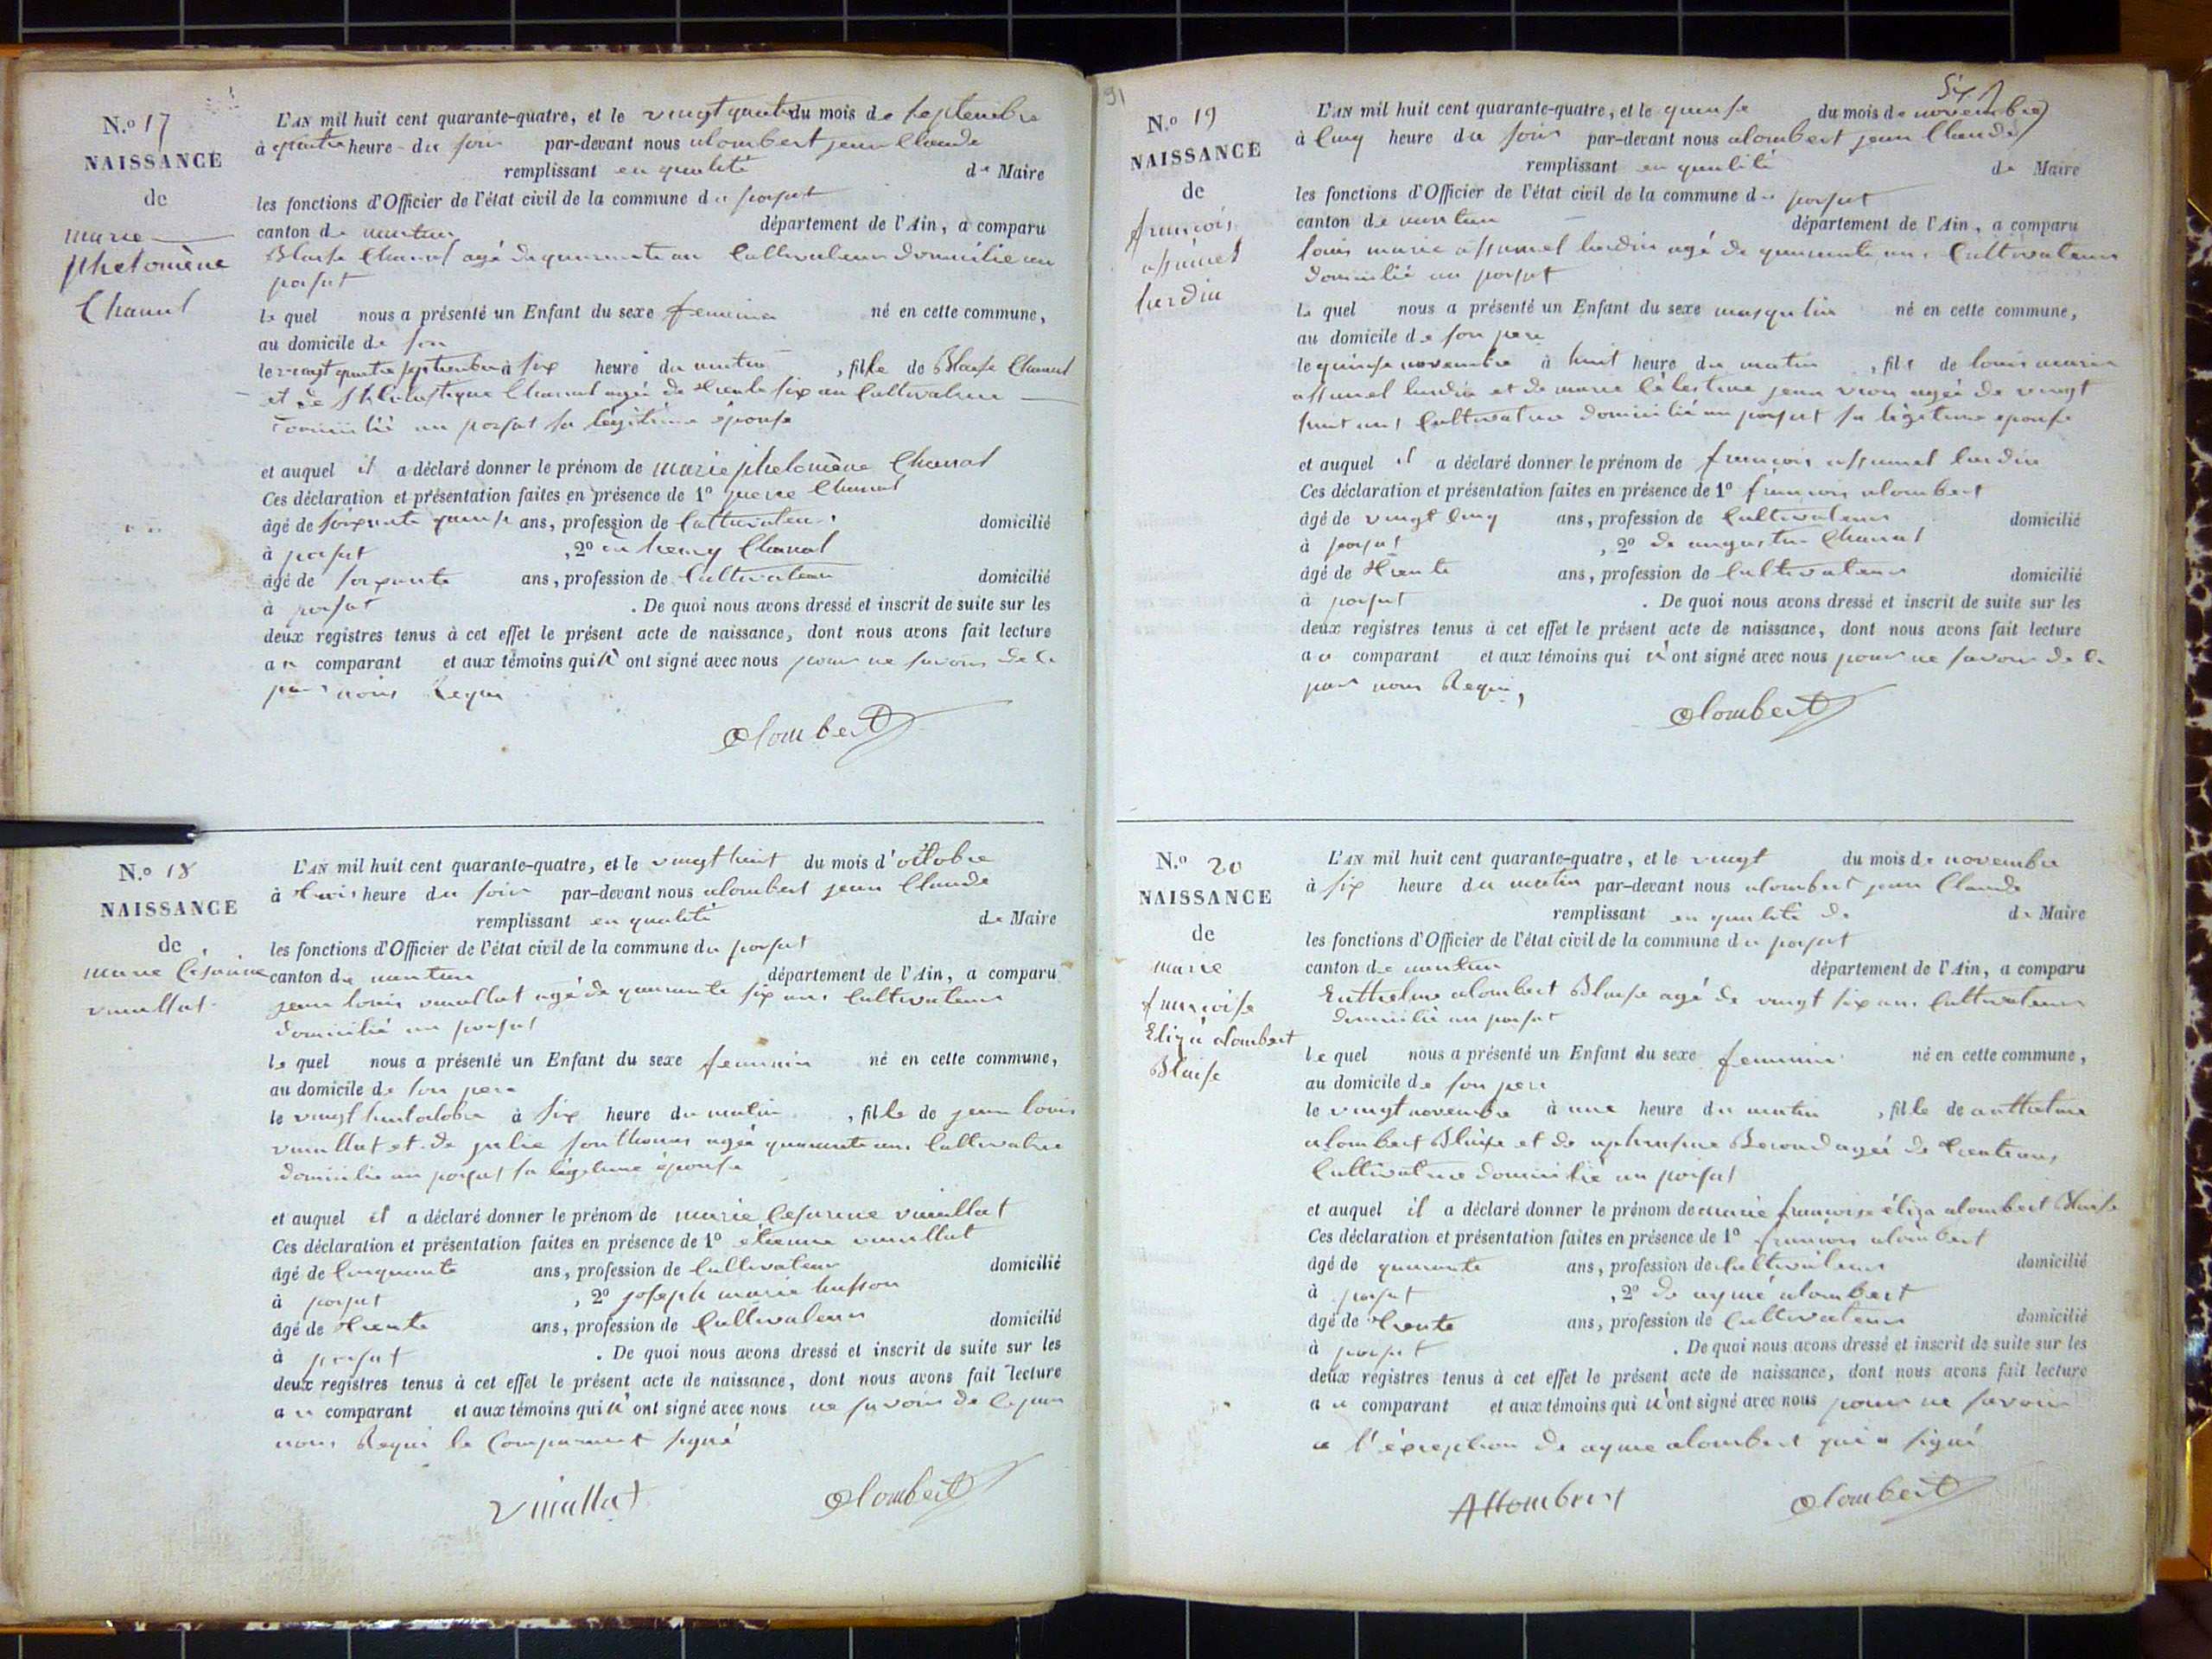 N.o 17
NAISSANCE
de
marie
phelomène
Chanal
L'AN mil huit cent quarante-quatre, et le vingt quatre du mois de septembre
à quatre heure du soir par-devant nous alombert jean Claude
remplissant en qualité de Maire
les fonctions d'Officier de l'état civil de la commune du
canton de nantua département de l'Ain, a comparu
Blaise Chanal agé de quarante an Cultivateur domicilié au
le quel nous a présenté un Enfant du sexe feminin né en cette commune,
au domicile de son
le vingt quatre septembre à six heure du matin, fille de Blaise Chanal
et de Chanal agée de trente six an Cultivatrice
domicilié au sa légitime épouse
et auquel il a déclaré donner le prénom de marie phelomène Chanal
Ces déclaration et présentation faites en présence de 1º pierre Chanal
âgé de soixante quinse ans, profession de Cultivateur domicilié
à , 2º de henry Chanal
âgé de soixante ans, profession de Cultivateur domicilié
à . De quoi nous avons dressé et inscrit de suite sur les
deux registres tenus à cet effet le présent acte de naissance, dont nous avons fait lecture
au comparant et aux témoins qui n'ont signé avec nous pour ne savoir de ce
par nous Requi
alombert
N.o 18
NAISSANCE
de
marie Césarine
vuaillat
L'AN mil huit cent quarante-quatre, et le vingt huit du mois d'octobre
à trois heure du soir par-devant nous alombert jean Claude
remplissant en qualité de Maire
les fonctions d'Officier de l'état civil de la commune du
canton de nantua département de l'Ain, a comparu
jean louis vuaillat agé de quarante six ans Cultivateur
domicilié au
le quel nous a présenté un Enfant du sexe feminin né en cette commune,
au domicile de son pere
le vingt huit octobre à six heure du matin, fille de jean louis
vuaillat et de julie agée quarante ans Cultivatrice
domicilié au sa légitime épouse
et auquel il a déclaré donner le prénom de marie Cesarine vuaillat
Ces déclaration et présentation faites en présence de 1º étienne vuaillat
âgé de Cinquante ans, profession de Cultivateur domicilié
à , 2º joseph marie husson
âgé de trente ans, profession de Cultivateur domicilié
à . De quoi nous avons dressé et inscrit de suite sur les
deux registres tenus à cet effet le présent acte de naissance, dont nous avons fait lecture
au comparant et aux témoins qui n'ont signé avec nous ne savoir de ce par
nous Requi le Comparant signé
Vuaillat alombert
91
N.o 19
NAISSANCE
de
françois
assumel
lurdin
L'AN mil huit cent quarante-quatre, et le quinse du mois de novembre
à Cinq heure du soir par-devant nous alombert jean Claude
remplissant en qualité de Maire
les fonctions d'Officier de l'état civil de la commune du
canton de nantua département de l'Ain, a comparu
louis marie assumel lurdin agé de quarante ans Cultivateur
domicilié au
le quel nous a présenté un Enfant du sexe masqulin né en cette commune,
au domicile de son pere
le quinse novembre à huit heure du matin, fils de louis marie
assumel lurdin et de marie Célestine jean vion agée de vingt
huit ans Cultivatrice domicilié au sa légitime epouse
et auquel il a déclaré donner le prénom de françois assumel lurdin
Ces déclaration et présentation faites en présence de 1º françois alombert
âgé de vingt Cinq ans, profession de Cultivateur domicilié
à , 2º de augustin Chanal
âgé de trente ans, profession de Cultivateur domicilié
à . De quoi nous avons dressé et inscrit de suite sur les
deux registres tenus à cet effet le présent acte de naissance, dont nous avons fait lecture
au comparant et aux témoins qui n'ont signé avec nous pour ne savoir de ce
par nous Requi,
alombert
N.o 20
NAISSANCE
de
marie
françoise
Eliza alombert
Blaise
L'AN mil huit cent quarante-quatre, et le vingt du mois de novembre
à six heure du matin par-devant nous alombert jean Claude
remplissant en qualité de de Maire
les fonctions d'Officier de l'état civil de la commune du
canton de nantua département de l'Ain, a comparu
alombert Blaise agé de vingt six ans Cultivateur
domicilié au
le quel nous a présenté un Enfant du sexe feminin né en cette commune,
au domicile de son pere
le vingt novembre à une heure du matin, fille de anthelme
alombert Blaise et de agée de trente ans
Cultivatrice domicilié au
et auquel il a déclaré donner le prénom de marie françoise éliza alombert Blaise
Ces déclaration et présentation faites en présence de 1º françois alombert
âgé de quarante ans, profession de Cultivateur domicilié
à , 2º de aymé alombert
âgé de trente ans, profession de Cultivateur domicilié
à . De quoi nous avons dressé et inscrit de suite sur les
deux registres tenus à cet effet le présent acte de naissance, dont nous avons fait lecture
au comparant et aux témoins qui n'ont signé avec nous pour ne savoir
a l'éxception de ayme alombert qui a signé
Allombert alombert